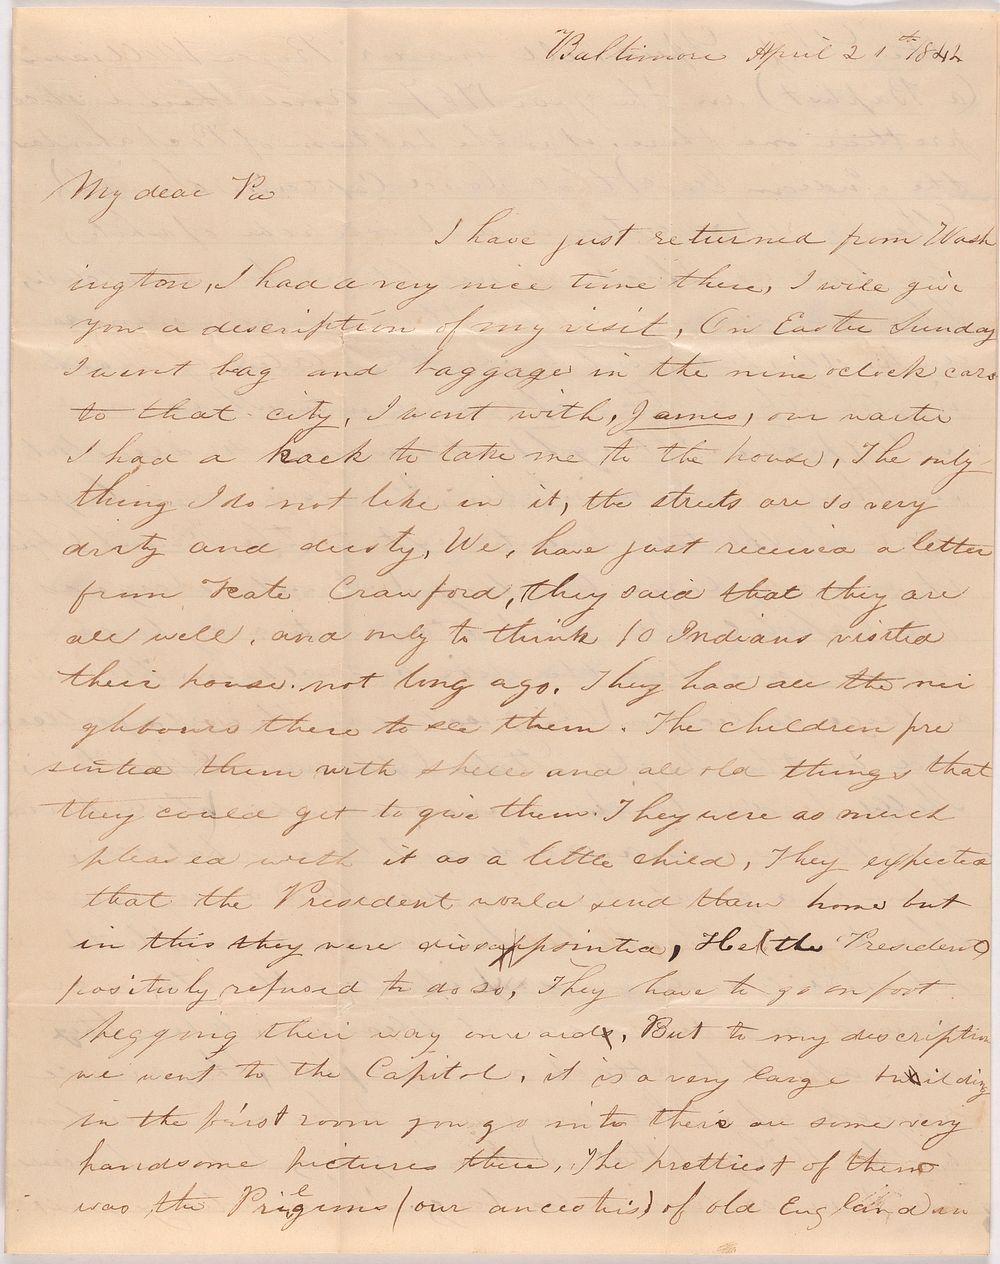 Baltimore April 21th 1844
My dear Pa
I have just returned from Wash
ington, I had a very nice time there, I will give
you a description of my visit, On Easter Sunday
I went bag and baggage in the nine oclock cars
to that city, I went with, James, our waiter
I had a hack to take me to the house, The only
thing I do not like in it, the streets are so very
dirty and dusty, We, have just received a letter
from Kate Crawford, they said that they are
all well, and only to think 10 Indians visited
their house not long ago. They had all the nei
ghbours there to see them. The children pre
sented them with shells and all old things that
they could get to give them. They were as much
pleased with it as a little child, They expected
that the President would send them home but
in this they were dissappointed, He (the President)
positivly refused to do so, They have to go on foot
begging their way onward, But to my description
we went to the Capitol, it is a very large building
in the first room you go into there are some very
handsome pictures there, The prettiest of them
was the Prilgims (our ancestors) of old England in